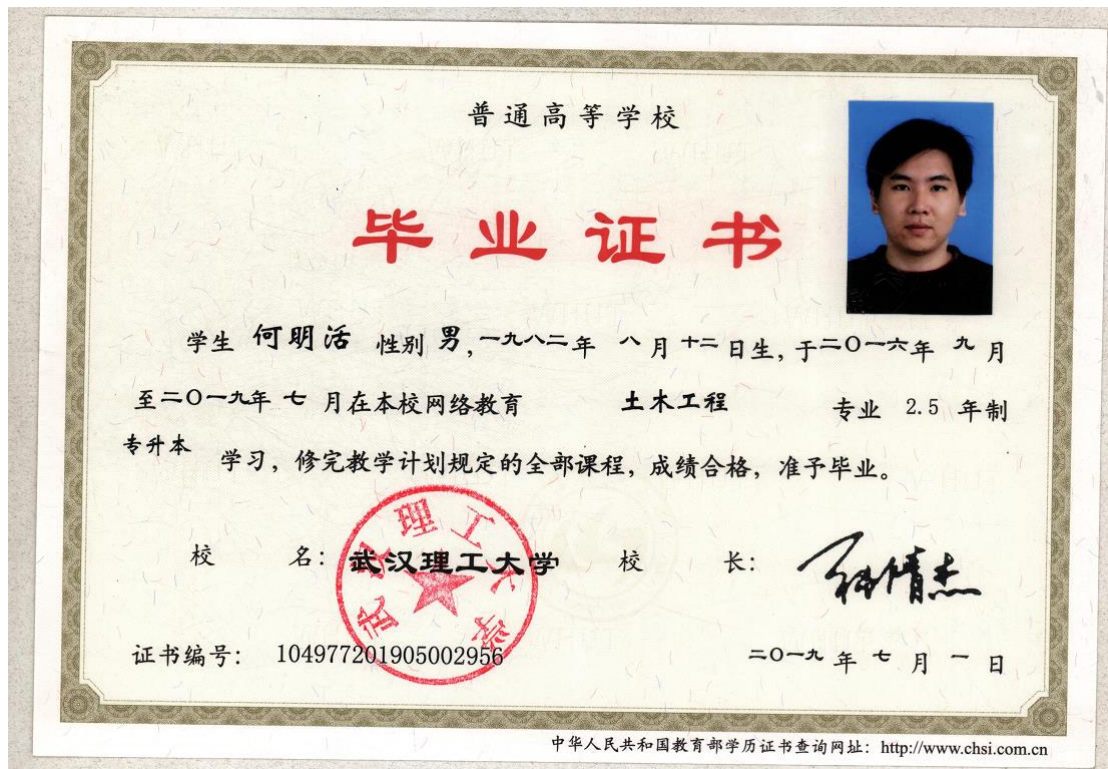 普通高等学校
毕业证书
学生 何明活 性别 男, 一九八二年 八 月 十二 日生, 于二〇一六年 九 月
至二〇一九年 七 月在本校网络教育 土木工程 专业 2.5 年制
专升本 学习, 修完教学计划规定的全部课程, 成绩合格, 准予毕业。
武汉理工大学
校 名: 武汉理工大学 校 长:
证书编号: 104977201905002956 二〇一九 年 七 月 一 日
中华人民共和国教育部学历证书查询网址: http://www.chsi.com.cn